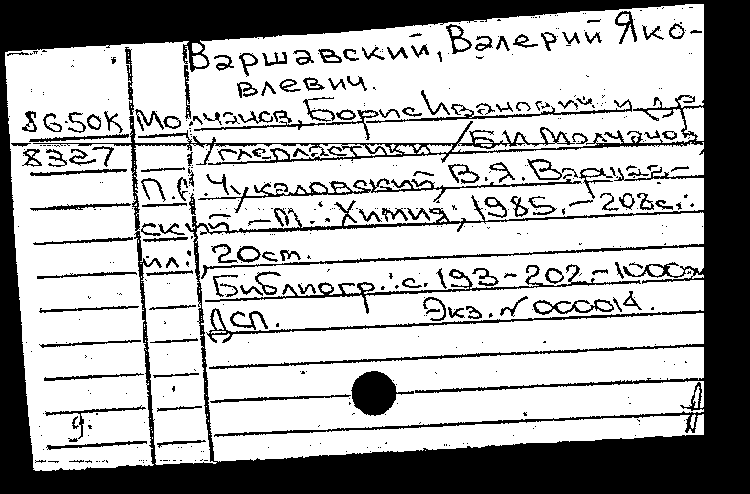 Варшавский, Валерий Яко-
влевич.
86.50К Молчанов, Борис Иванович и др.
8327 Углепластики / Б.И. Молчанов,
П. Чукаловский, В.Я. Варшав-
ский. - М.: Химия, 1985. - 208с.:
ил.; 20см.
Библиогр.: с. 193-202. - 1000эк
ДСП. Экз. N 000014.
д.